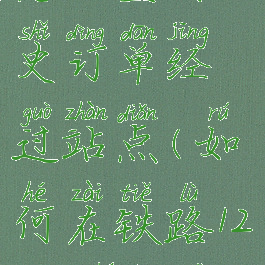 shǐ dìng dān jīng
史订单经
guò zhàn diǎn rú
过站点(如
hé zài tiě lù
何在铁路12